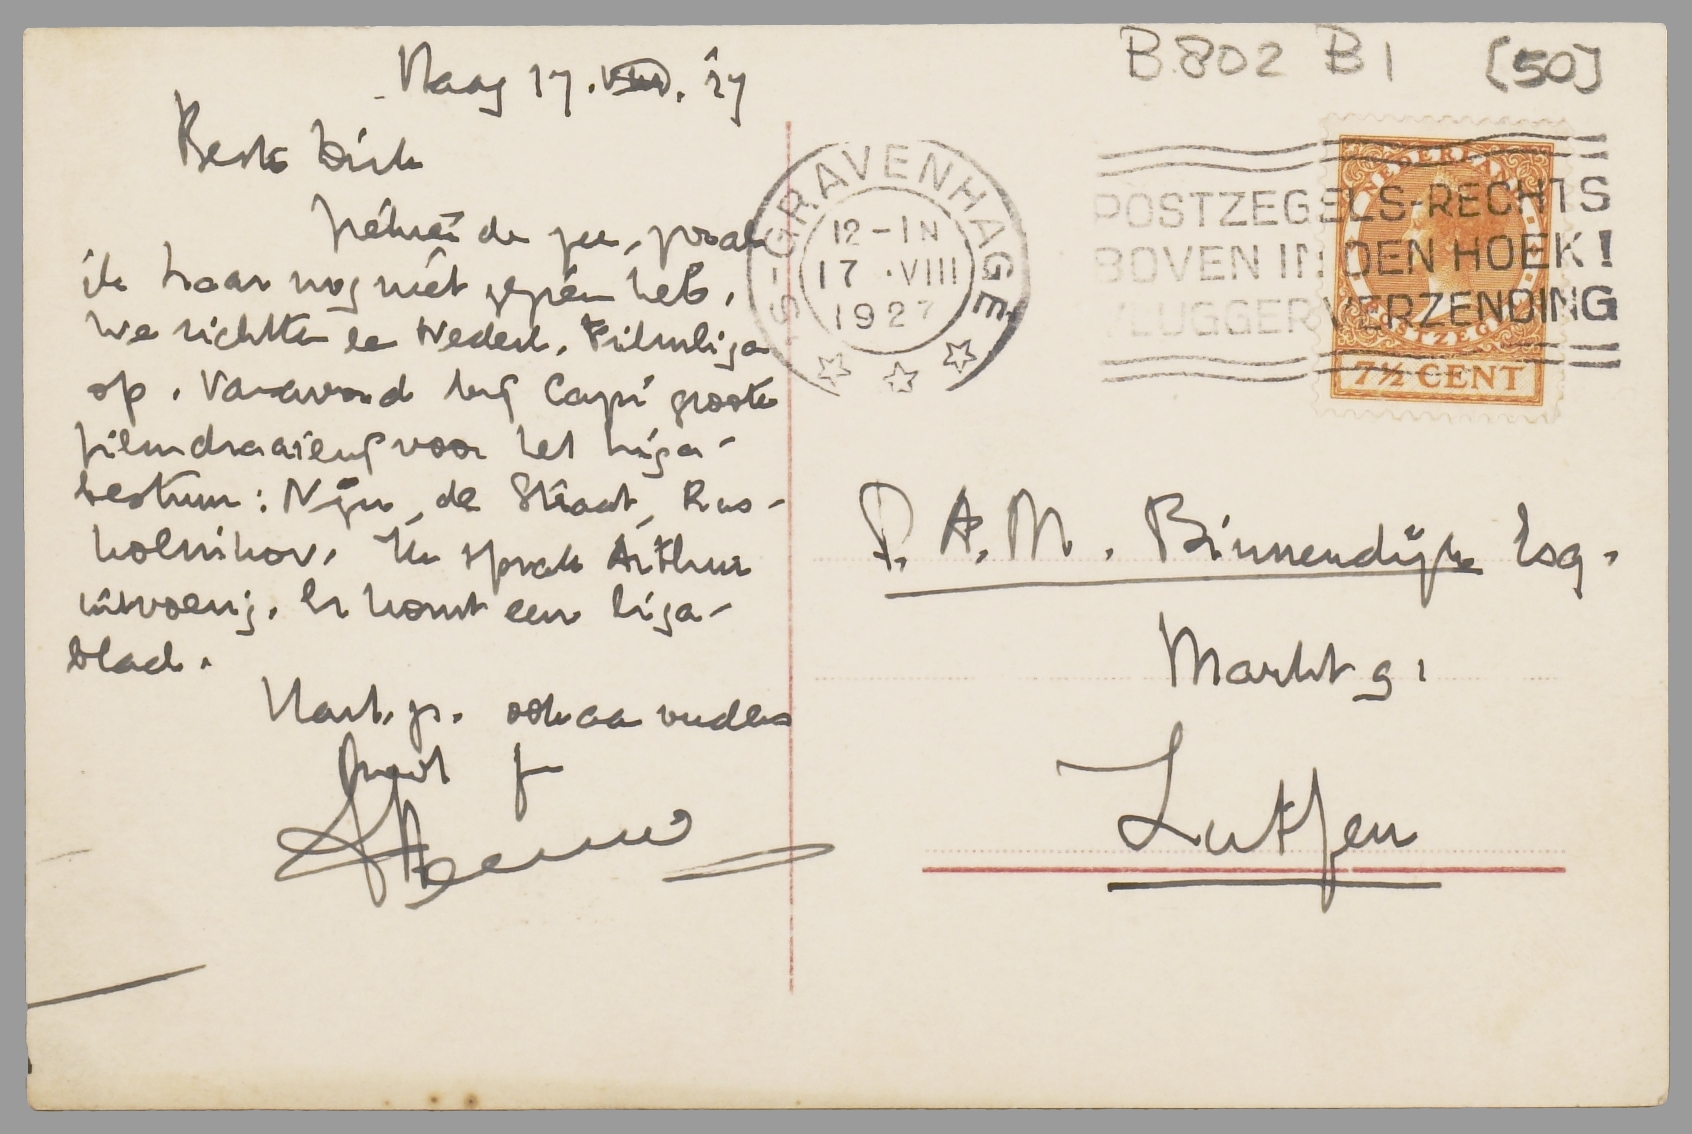 B 802 B 1 [50]
Haag 17. VIII. 27
Beste Dick
hier de
ik haar nog niet gezien heb.
We richtten de Nederl. Filmliga
op. Vanavond bij Capi groote
filmdraaierij voor het Liga-
bestuur: Nijn, de Straat, Ras-
kolnikov. Ik sprak Arthur
uitvoerig. Er komt een liga-
blad.
Hart. gr. ook aan ouders
je
'S-GRAVENHAGE
12-1 N
17 .VIII
1927
POSTZEGELS-RECHTS
BOVEN IN DEN HOEK!
VLUGGER VERZENDING
NEDERLAND
POSTZEGEL
7½ CENT
D. A. M. Binnendijk Esq.
Markt 91
Zutfen